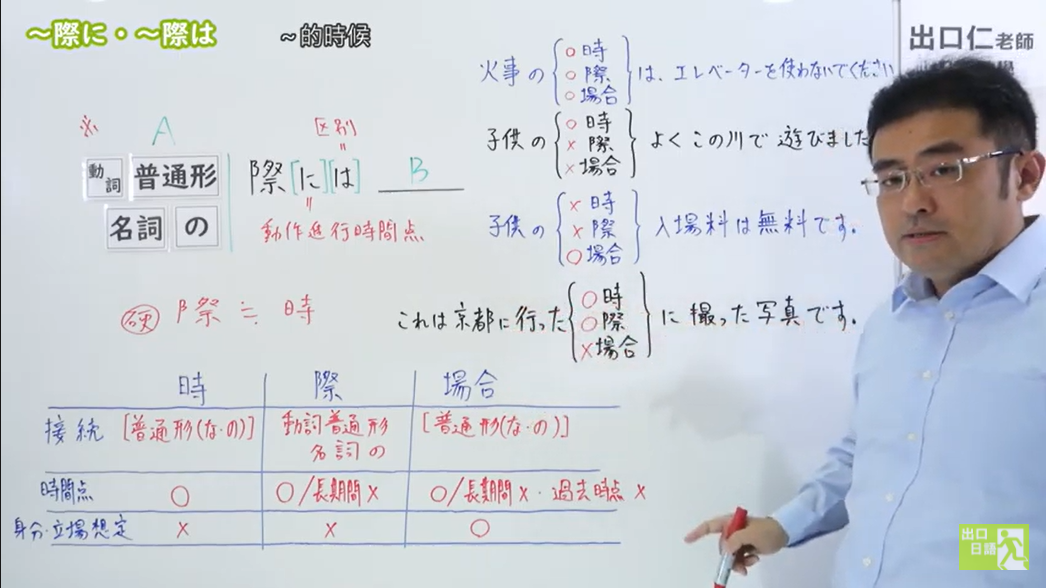 ~際に・~際は
~的時候
出口仁老師
※ A
区別
動詞 普通形 際[に][は] B
名詞 の
動作進行時間点
硬 際≒時
火事の{○時 ○際 ○場合}は、エレベーターを使わないでください
子供の{○時 ×際 ×場合}よくこの川で遊びました
子供の{×時 ×際 ○場合}入場料は無料です。
これは京都に行った{○時 ○際 ×場合}に撮った写真です。
時 際 場合
接続 [普通形(な・の)] 動詞普通形 名詞の [普通形(な・の)]
時間点 ○ ○/長期間× ○/長期間×・過去時点×
身分・立場想定 × × ○
出口日語